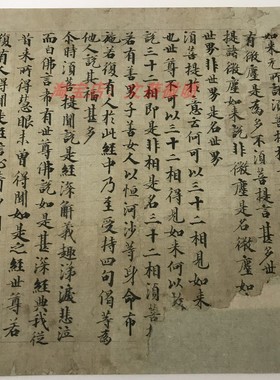 如來无所說
有微塵是為多不須菩提言甚多世
提諸微塵如來說非微塵是名微塵如
世界非世界是名世界
須菩提於意云何可以三十二相見如來
也世尊不可以三十二相得見如來何以故
說三十二相即是非相是名三十二相須菩
若有善男子善女人以恒河沙等身命布
施若復有人於此經中乃至受持四句偈等為
他人說其福甚多
尒時須菩提聞說是經深解義趣涕淚悲泣
而白佛言希有世尊佛說如是甚深經典我從
昔來所得慧眼未曾得聞如是之經世尊若
復有人得聞是經信心清